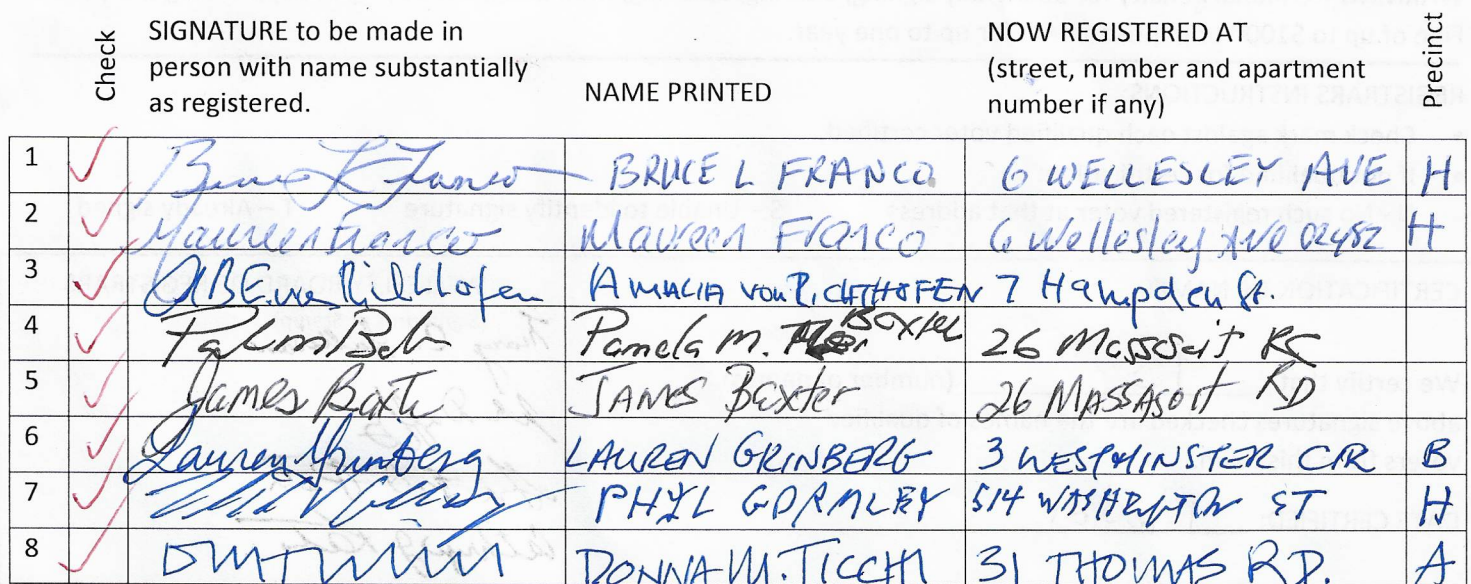 Fine of up to $100 up to one year.
Check
SIGNATURE to be made in
person with name substantially
as registered.
NAME PRINTED
NOW REGISTERED AT
(street, number and apartment
number if any)
Precinct
1 Bruce L Franco BRUCE L FRANCO 6 WELLESLEY AVE H
2 Maureen Franco Maureen Franco 6 Wellesley Ave 02482 H
3 AMALIA VON RICHTHOFEN 7 Hampden St.
4 Pamela M. Baxter 26 Massasoit RD
5 James Baxter JAMES Baxter 26 MASSASOIT RD
6 Lauren Grinberg LAUREN GRINBERG 3 WESTMINSTER CIR B
7 PHYL GORMLEY 514 WASHINGTON ST H
8 DONNA M. TICCHI 31 THOMAS RD. A